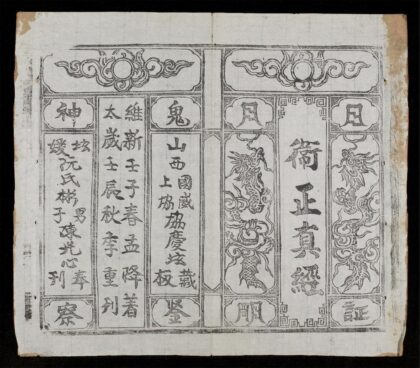 日
月
衛正真經
証
明
鬼
山西國威上協協慶坛藏板
鑒
維新壬子春孟降著
太歲壬辰秋季重刊
神
坛媛阮氏彬男子陳光心奉刊
察